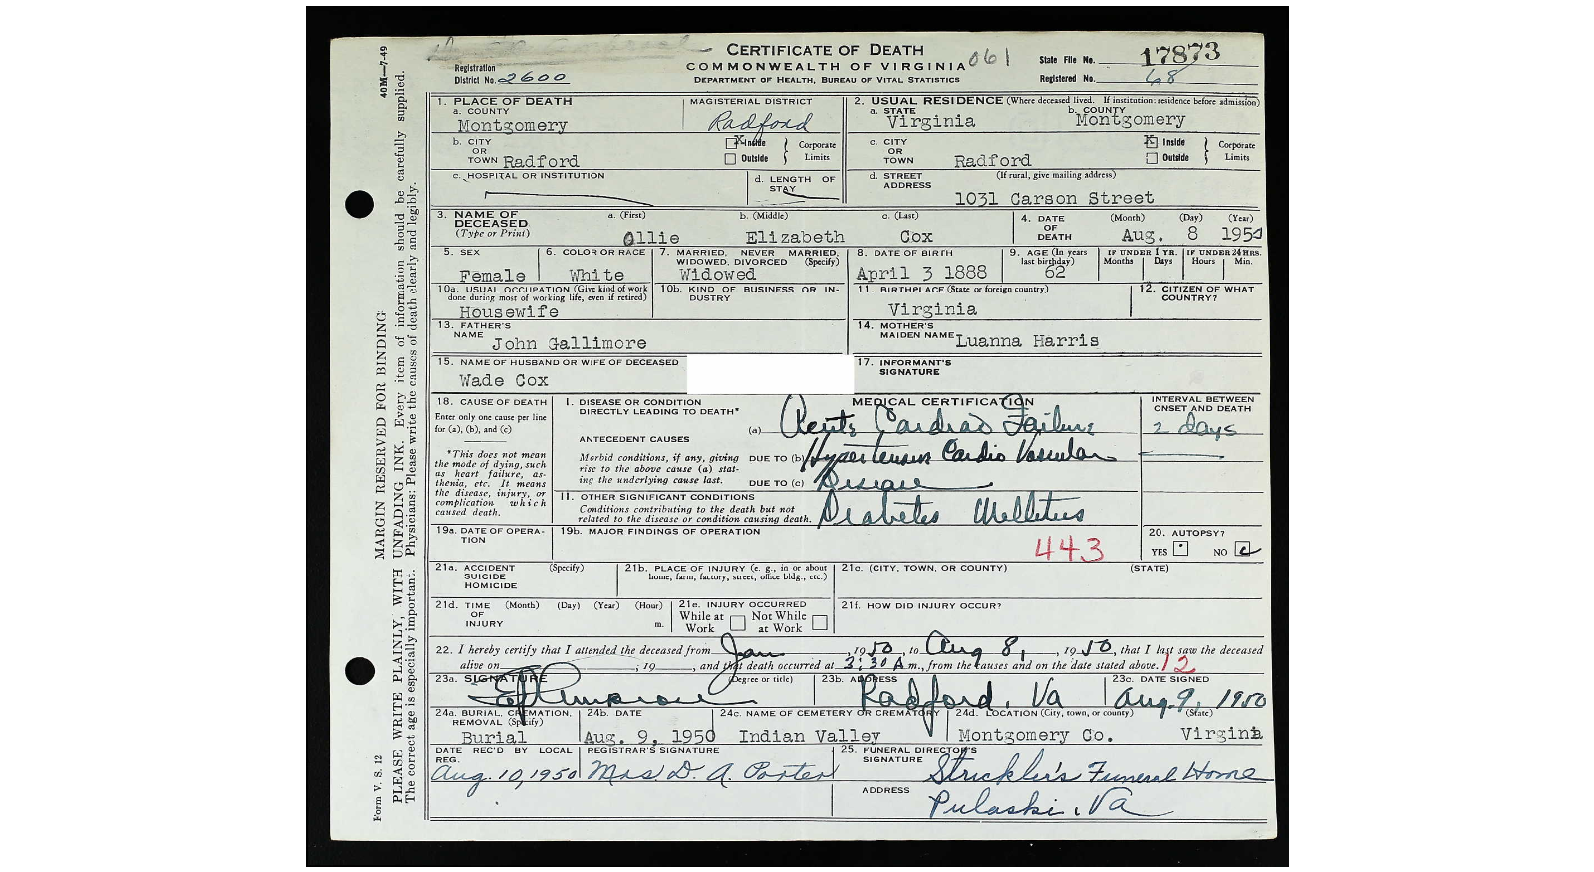 CERTIFICATE OF DEATH
COMMONWEALTH OF VIRGINIA 061
DEPARTMENT OF HEALTH, BUREAU OF VITAL STATISTICS
Registration District No. 2600
State File No. 17873
Registered No. 68
40M—7-49
MARGIN RESERVED FOR BINDING
PLEASE WRITE PLAINLY, WITH UNFADING INK. Every item of information should be carefully supplied.
The correct age is especially important. Physicians: Please write the causes of death clearly and legibly.
Form V. S. 12
1. PLACE OF DEATH
a. COUNTY Montgomery
MAGISTERIAL DISTRICT Radford
b. CITY OR TOWN Radford
X Inside Outside } Corporate Limits
c. HOSPITAL OR INSTITUTION
d. LENGTH OF STAY
2. USUAL RESIDENCE (Where deceased lived. If institution: residence before admission)
a. STATE Virginia
b. COUNTY Montgomery
c. CITY OR TOWN Radford
X Inside Outside } Corporate Limits
d. STREET ADDRESS (If rural, give mailing address)
1031 Carson Street
3. NAME OF DECEASED (Type or Print)
a. (First) b. (Middle) c. (Last)
Ollie Elizabeth Cox
4. DATE OF DEATH (Month) (Day) (Year)
Aug. 8 1950
5. SEX Female
6. COLOR OR RACE White
7. MARRIED, NEVER MARRIED, WIDOWED, DIVORCED (Specify) Widowed
8. DATE OF BIRTH April 3 1888
9. AGE (In years last birthday) 62
IF UNDER 1 YR. Months Days
IF UNDER 24 HRS. Hours Min.
10a. USUAL OCCUPATION (Give kind of work done during most of working life, even if retired) Housewife
10b. KIND OF BUSINESS OR INDUSTRY
11 BIRTHPLACE (State or foreign country) Virginia
12. CITIZEN OF WHAT COUNTRY?
13. FATHER'S NAME John Gallimore
14. MOTHER'S MAIDEN NAME Luanna Harris
15. NAME OF HUSBAND OR WIFE OF DECEASED Wade Cox
17. INFORMANT'S SIGNATURE
18. CAUSE OF DEATH
Enter only one cause per line for (a), (b), and (c)
*This does not mean the mode of dying, such as heart failure, asthenia, etc. It means the disease, injury, or complication which caused death.
MEDICAL CERTIFICATION
I. DISEASE OR CONDITION DIRECTLY LEADING TO DEATH*
(a) Acute Cardiac Failure
INTERVAL BETWEEN ONSET AND DEATH
2 days
ANTECEDENT CAUSES
Morbid conditions, if any, giving rise to the above cause (a) stating the underlying cause last.
DUE TO (b) Hypertension Cardio Vascular
DUE TO (c) Disease
II. OTHER SIGNIFICANT CONDITIONS
Conditions contributing to the death but not related to the disease or condition causing death.
Diabetes Mellitus
19a. DATE OF OPERATION
19b. MAJOR FINDINGS OF OPERATION
443
20. AUTOPSY?
YES NO
21a. ACCIDENT SUICIDE HOMICIDE (Specify)
21b. PLACE OF INJURY (e. g., in or about home, farm, factory, street, office bldg., etc.)
21c. (CITY, TOWN, OR COUNTY) (STATE)
21d. TIME OF INJURY (Month) (Day) (Year) (Hour) m.
21e. INJURY OCCURRED
While at Work Not While at Work
21f. HOW DID INJURY OCCUR?
22. I hereby certify that I attended the deceased from Jan, 1950, to Aug 8, 1950, that I last saw the deceased
alive on , 19 , and that death occurred at 3:30 A m., from the causes and on the date stated above. 12
23a. SIGNATURE (Degree or title)
23b. ADDRESS Radford, Va
23c. DATE SIGNED Aug. 9, 1950
24a. BURIAL, CREMATION, REMOVAL (Specify) Burial
24b. DATE Aug. 9, 1950
24c. NAME OF CEMETERY OR CREMATORY Indian Valley
24d. LOCATION (City, town, or county) (State)
Montgomery Co. Virginia
DATE REC'D BY LOCAL REG. Aug. 10, 1950
REGISTRAR'S SIGNATURE Mrs. D. A. Porter
25. FUNERAL DIRECTOR'S SIGNATURE Strickler's Funeral Home
ADDRESS Pulaski, Va